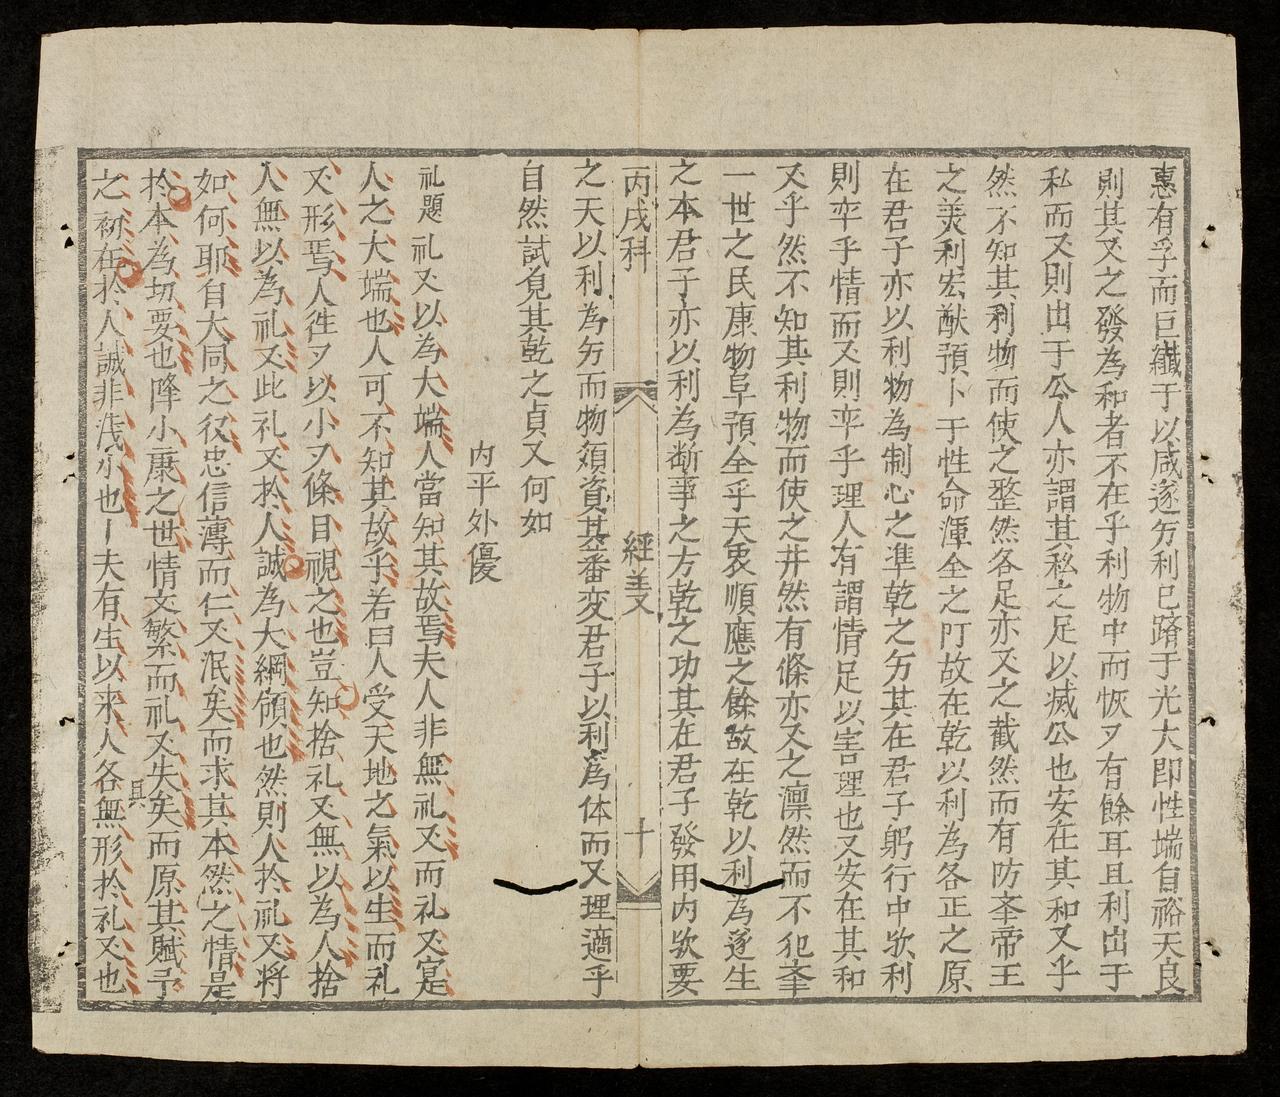 惠有孚而巨纖于以咸遂穷利已躋于光大即性端自裕天良
則其又之發為和者不在乎利物中而恢又有餘耳且利出于
私而又則出于公人亦謂其私之足以烕公也安在其和又乎
然不知其利物而使之整然各足亦又之截然而有防夆帝王
之美利宏猷預卜于性命渾全之阧故在乾以利為各正之原
在君子亦以利物為制心之凖乾之穷其在君子躬行中欤利
則卒乎情而又則卒乎理人有謂情足以害理也又安在其和
又乎然不知其利物而使之井然有條亦又之凛然而不犯夆
一世之民康物阜預全乎天衷順應之餘故在乾以利為遂生
之本君子亦以利為断事之方乾之功其在君子發用内欤要
丙戌科 經義 十
之天以利為穷而物須資其蕃変君子以利為体而又理適乎
自然試覓其乾之貞又何如
内平外優
礼題 礼又以為大端人當知其故焉夫人非無礼又而礼又寔
人之大端也人可不知其故乎若曰人受天地之氣以生而礼
又形焉人徃又以小又條目視之也豈知捨礼又無以為人捨
人無以為礼又此礼又扵人誠為大綱領也然則人扵礼又将
如何耶自大同之役忠信薄而仁又泯矣而求其本然之情是
扵本為切要也降小康之世情文繁而礼又失矣而原其賦予
之初在扵人誠非淺小也丨夫有生以来人各無形扵礼又也
具